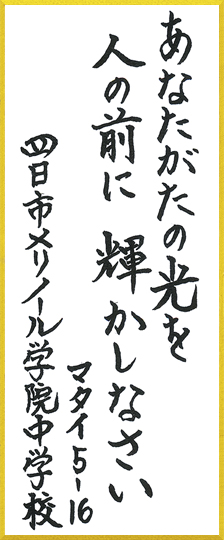 あなたがたの光を
人の前に 輝かしなさい
マタイ5-16
四日市メリノール学院中学校